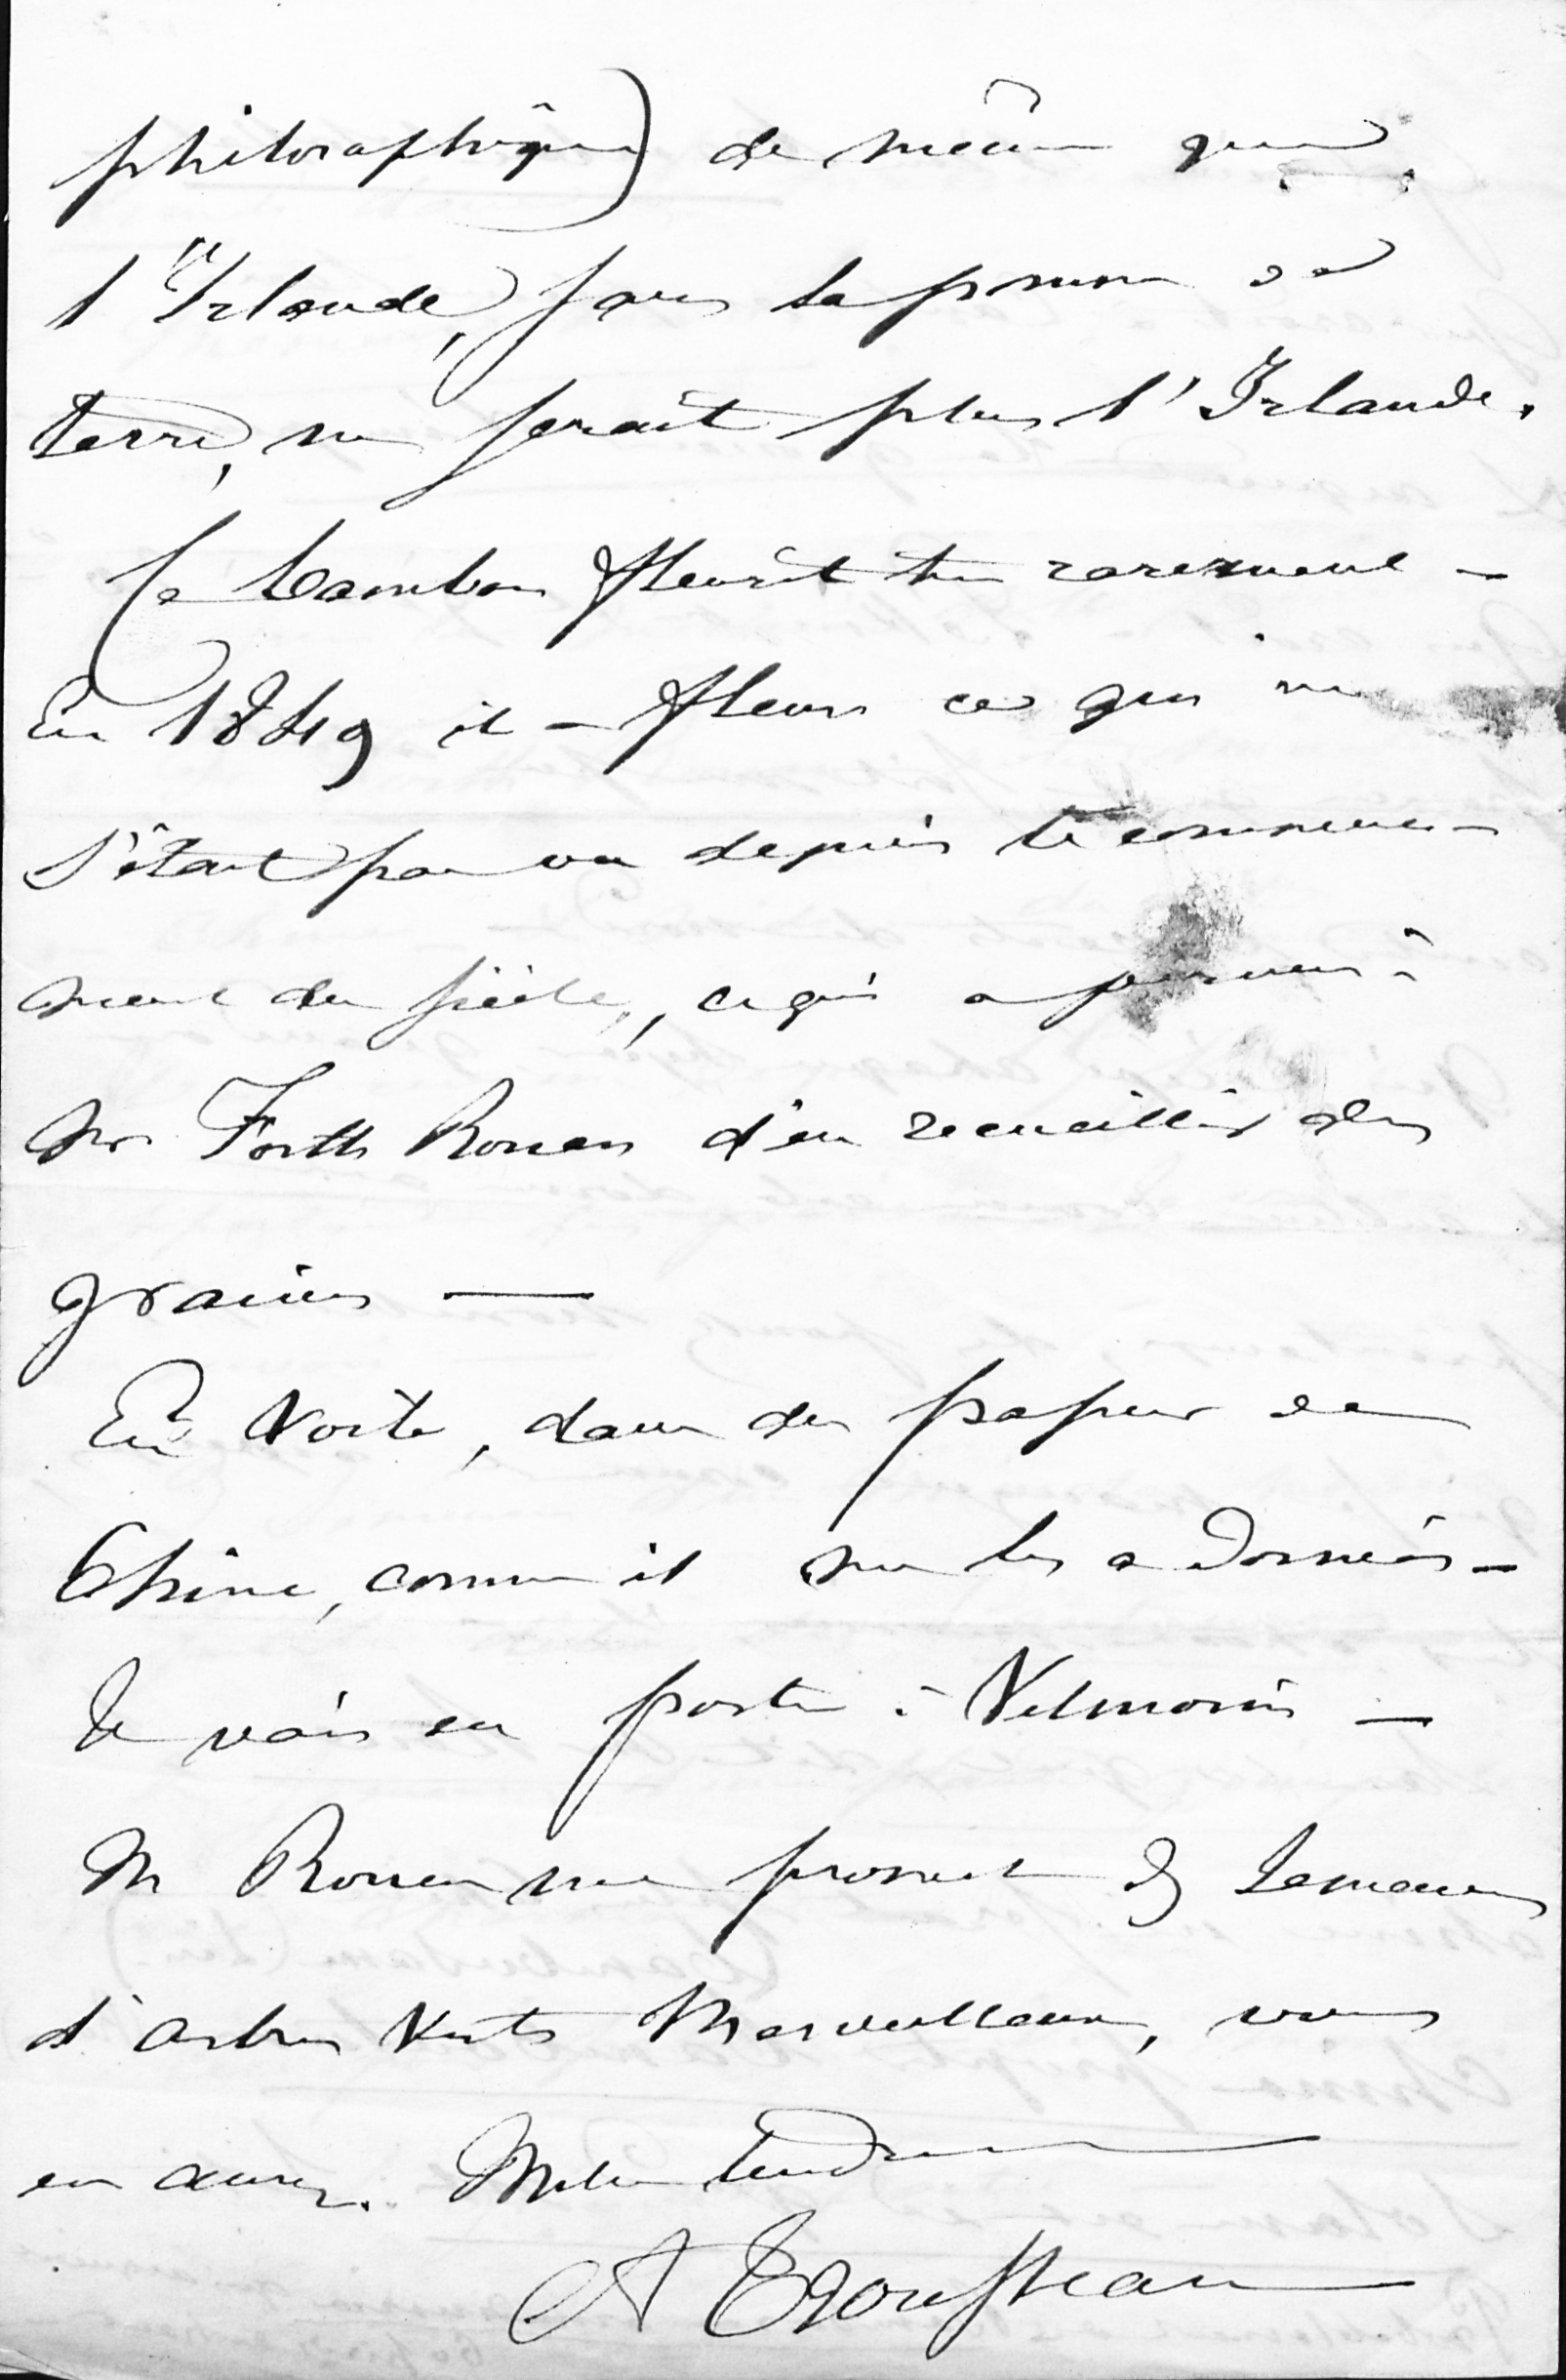 philosophique) de même que
l'Irlande, sans la pomme de
terre, ne serait plus l'Irlande.
Le bambou fleurit très rarement —
En 1849 il a fleuri ce qui ne
s'était pas vu depuis le commence-
ment du siècle, ce qui a permis à
Mr Forth Rouen d'en recueillir des
graines —
En voici, dans du papier de
Chine, comme il me les a données —
Je vais en porter à Vilmorin —
M Rouen me promet des semences
d'arbres verts merveilleux, vous
en aurez. Mille tendresses
A Trousseau